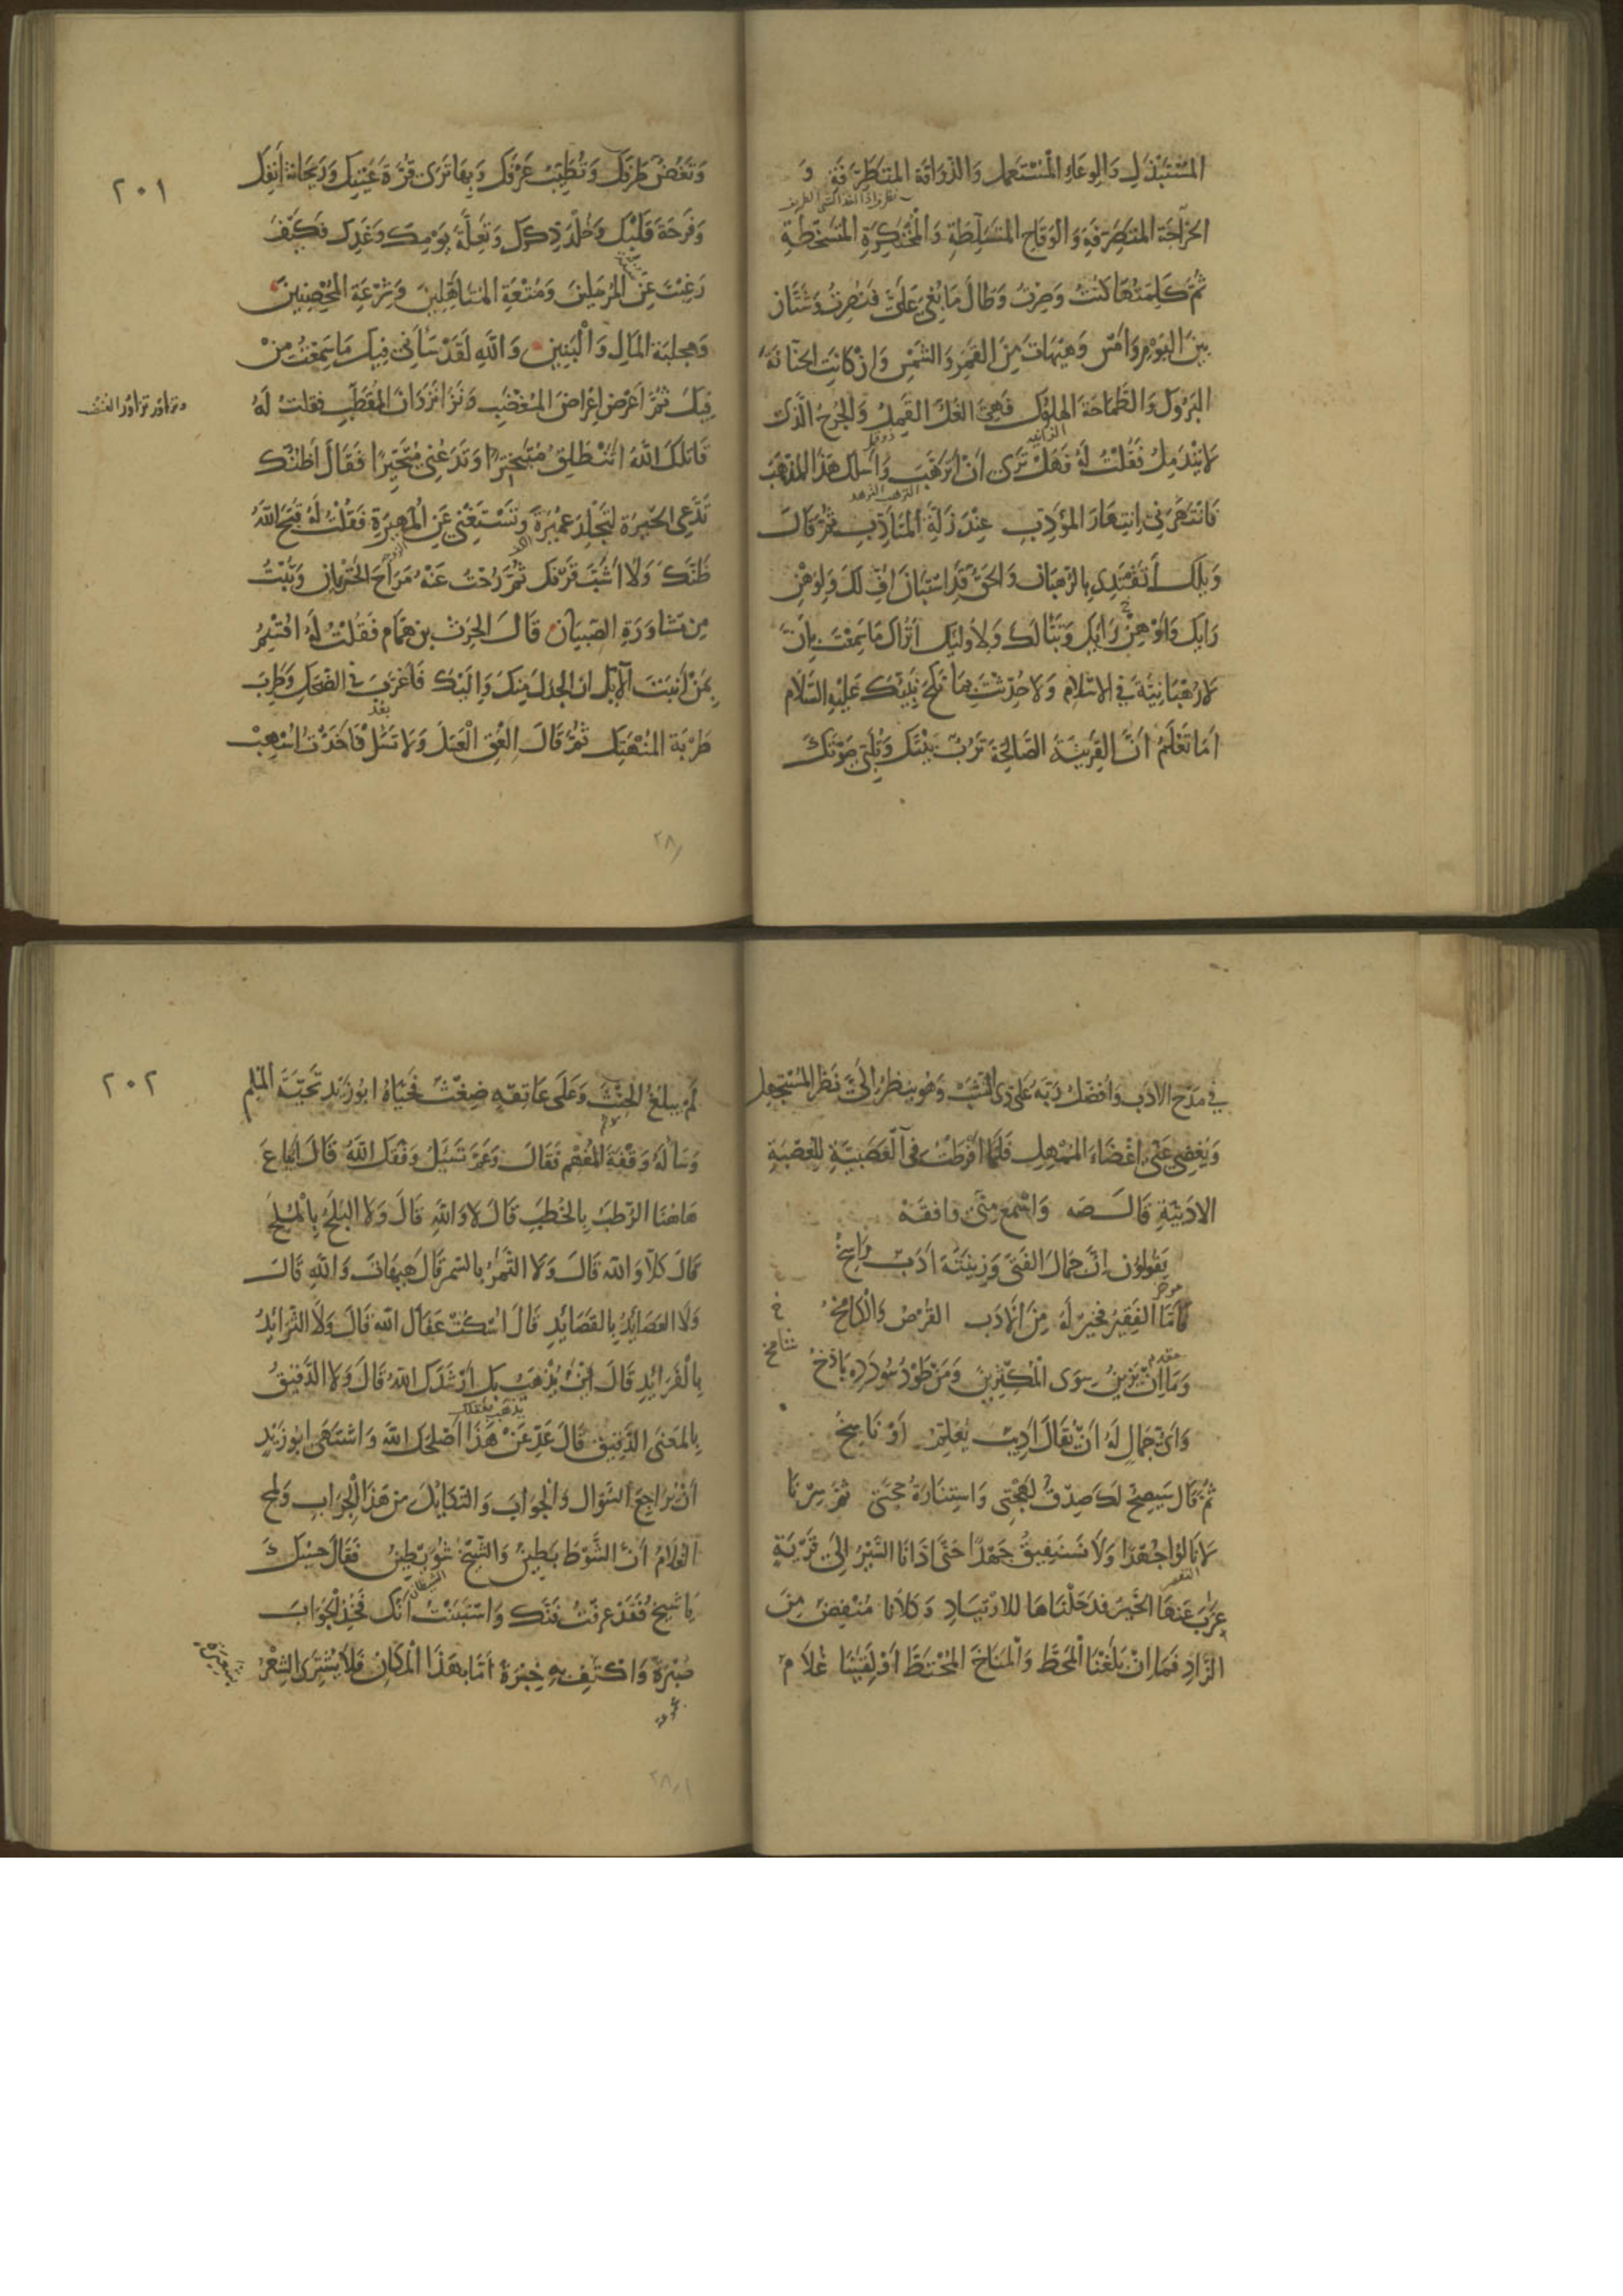 المستبذل والوعاء المستعمل والذواقة المتطرفة و
الخراجة المتصرفة والوقاح المتسلطة والمحتكرة المتسخطة
ثم كلمتها كنت وصرت وطال ما بغي علي فنصرت وشتان
بين اليوم وامس وهيهات من القمر والشمس وان كانت الحنانة
البروك والطماحة الهلوك فهي الغل القمل والجرح الذي
لا يندمل فقلت له فهل ترى ان اترهب واسلك هذا المذهب
فانتهرني انتهار المؤدب عند زلة المتأدب ثم قال
ويلك أتقتدي بالرهبان والحق قد استبان اف لك ولوهن
رايك وتبا لك ولاولئك اتراك ما سمعت بان
لا رهبانية في الاسلام ولا حدثت بمناكح نبيك عليه السلام
اما تعلم ان القرينة الصالحة ترب بيتك وتلبي صوتك
٢٠١
وتغض طرفك وتطيب عرفك وبها ترى قرة عينك وريحانة انفك
وفرحة قلبك وخلد ذكرك وتعلة يومك وغدك فكيف
رغبت عن المرسلين ومتعة المتاهلين وشرعة المحصنين
ومجلبة المال والبنين والله لقد ساءني فيك ما سمعت من
فيك ثم اعرض اعراض المغضب ونزا نزوان العنظب فقلت له
قاتلك الله اتنطلق متبخترا وتدعني متحيرا فقال اظنك
تدعي الحيرة لتجلد عميرة وتستغني عن المهيرة فقلت له قبح الله
ظنك ولا اشب قرنك ثم رحت عنه مراح الخزيان وتبت
من مشاورة الصبيان قال الحرث بن همام فقلت له اقسم
بمن انبت الايك ان الجدل منك واليك فاغرب في الضحك وطرب
طربة المنهمك ثم قال العق العسل ولا تسل فاخذت اسهب
في مدح الادب وافضل ربه على ذي النشب وهو ينظر الي نظر المستجهل
ويغضي علي اغضاء المتمهل فلما افرطت في العصبية للعصبة
الادبية قال صه واسمع مني وافقه
يقولون ان جمال الفتى وزينته ادب راسخ
فاما الفقير فخير له من الادب القرص والكامخ
وما ان يزين سوى المكثرين ومن طود سودده باذخ
شامخ
واي جمال له ان يقال اديب يعلم او ناسخ
ثم قال سيصح لك صدق لهجتي واستنارة حجتي ثم سرنا
لا نالوا جهدا ولا نستفيق جهدا حتى اذانا السير الى قرية
عزب عنها الخير فدخلناها للارتياد وكلانا منفض من
الزاد فما ان بلغنا المحط والمناخ المختط اذ لقينا غلام
٢٠٢
لم يبلغ الحنث وعلى عاتقه ضغث فحياه ابو زيد تحية المسلم
وساله وقفة المفهم فقال وعم تسئل وفقك الله قال ايباع
هاهنا الرطب بالخطب قال لا والله قال ولا البلح بالملح
قال كلا والله قال ولا الثمر بالسمر قال هيهات والله قال
ولا العصائد بالقصائد قال اسكت عفاك الله قال ولا الثرائد
بالفرائد قال اين يذهب بك ارشدك الله قال ولا الدقيق
بالمعنى الدقيق قال عد عن هذا اصلحك الله واشتهى ابو زيد
ان يراجع السؤال والجواب والتكايل من هذا الجراب ولمح
الغلام ان الشوط بطين والشيخ شويطين فقال حسبك
يا شيخ فقد عرفت فنك واستبنت انك فخذ الجواب
صبرة واكتف به خبرة اما بهذا المكان فلا يشترى الشعر